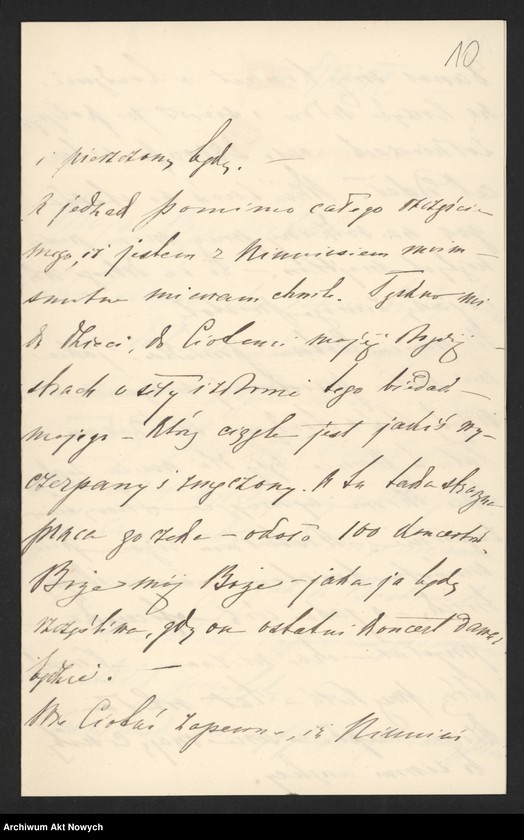 10
i pieszczony będę. —
A jednak pomimo całego szczęścia
mego, iż jestem z Niuniusiem moim —
smutne miewam chwile. Tęskno mi
do dzieci, do Cioteczki mojej
strach o siły i zdrowie tego biedaka
mojego — który ciągle jest jakiś wy-
czerpany i zmęczony. A tu taka straszna
praca go czeka — około 100 koncertów.
Boże mój Boże — jaka ja będę
szczęśliwa, gdy on ostatni koncert dawać
będzie. —
Ciotuś zapewne, iż Niuniuś
Archiwum Akt Nowych